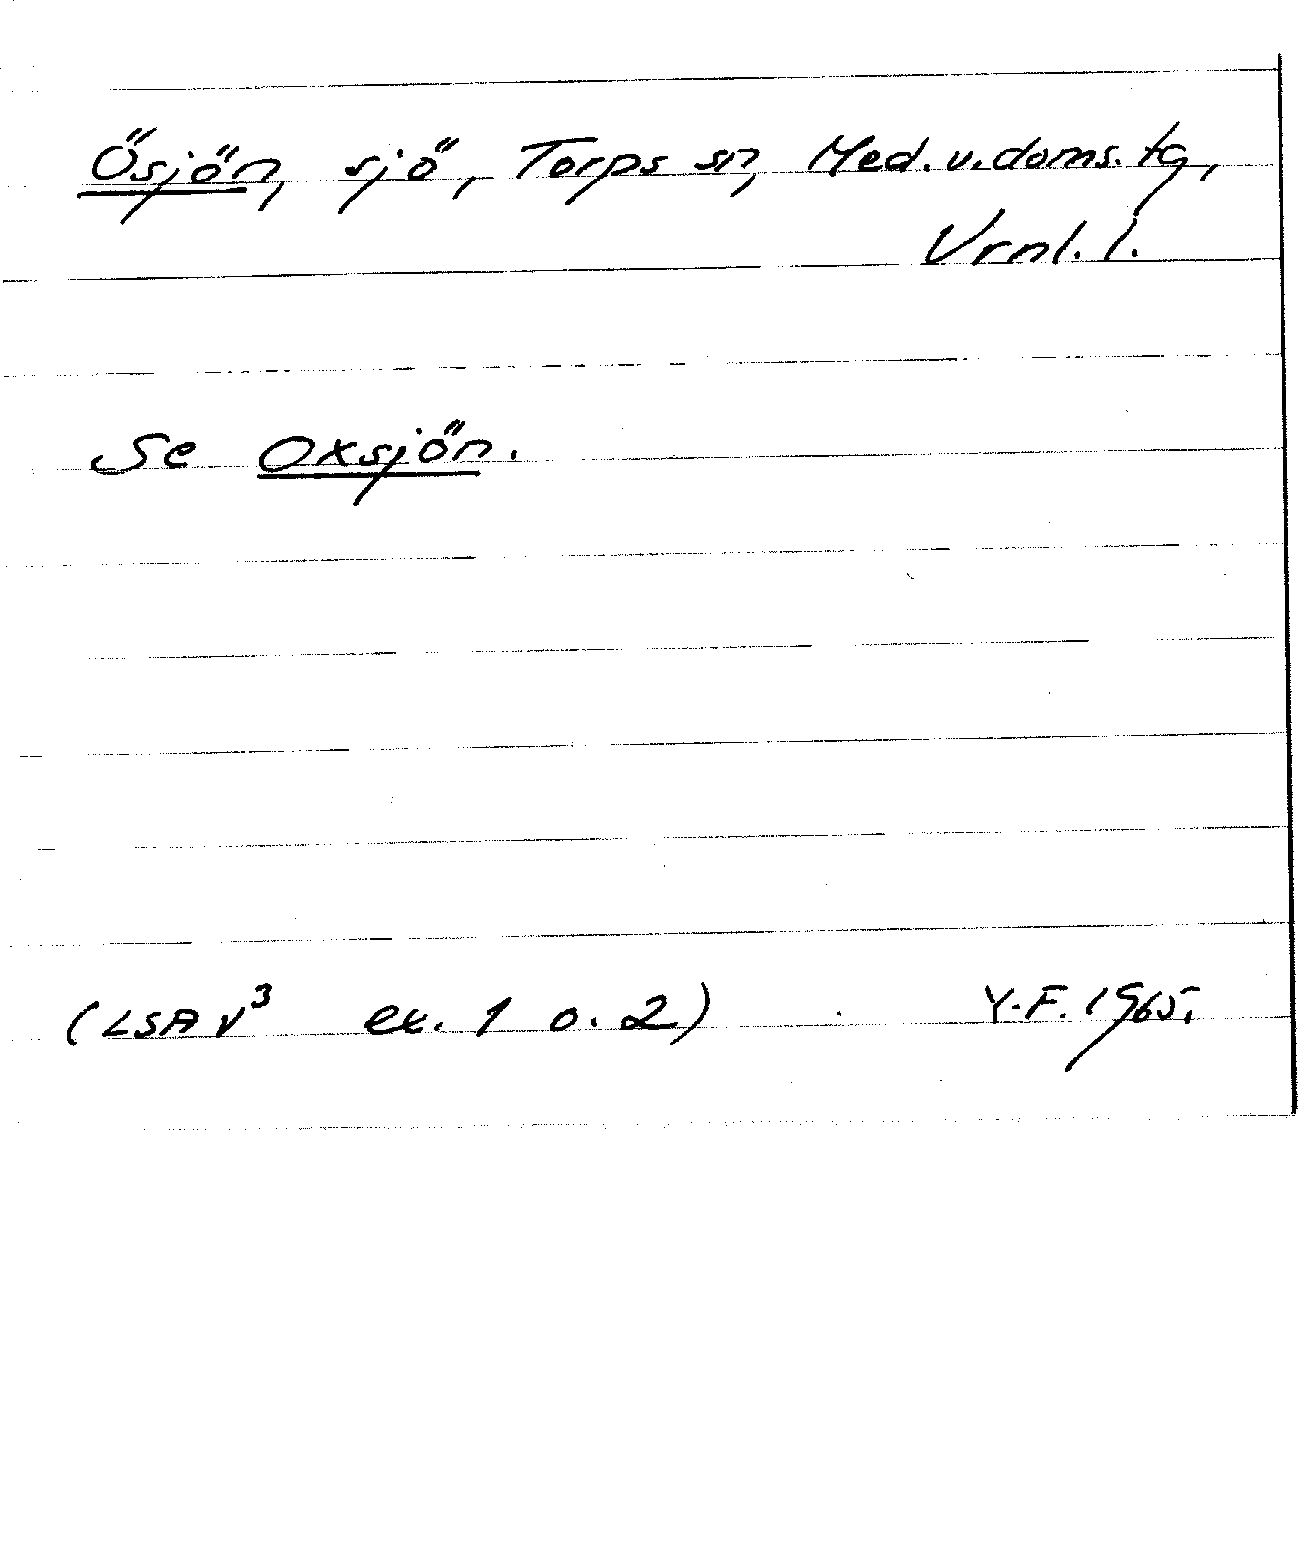 Ösjön, sjö, Torps sn, Med. v. doms. tg,
Vrnl. l.
Se Oxsjön.
(LSA V³ ex. 1 o. 2) Y.F. 1965.